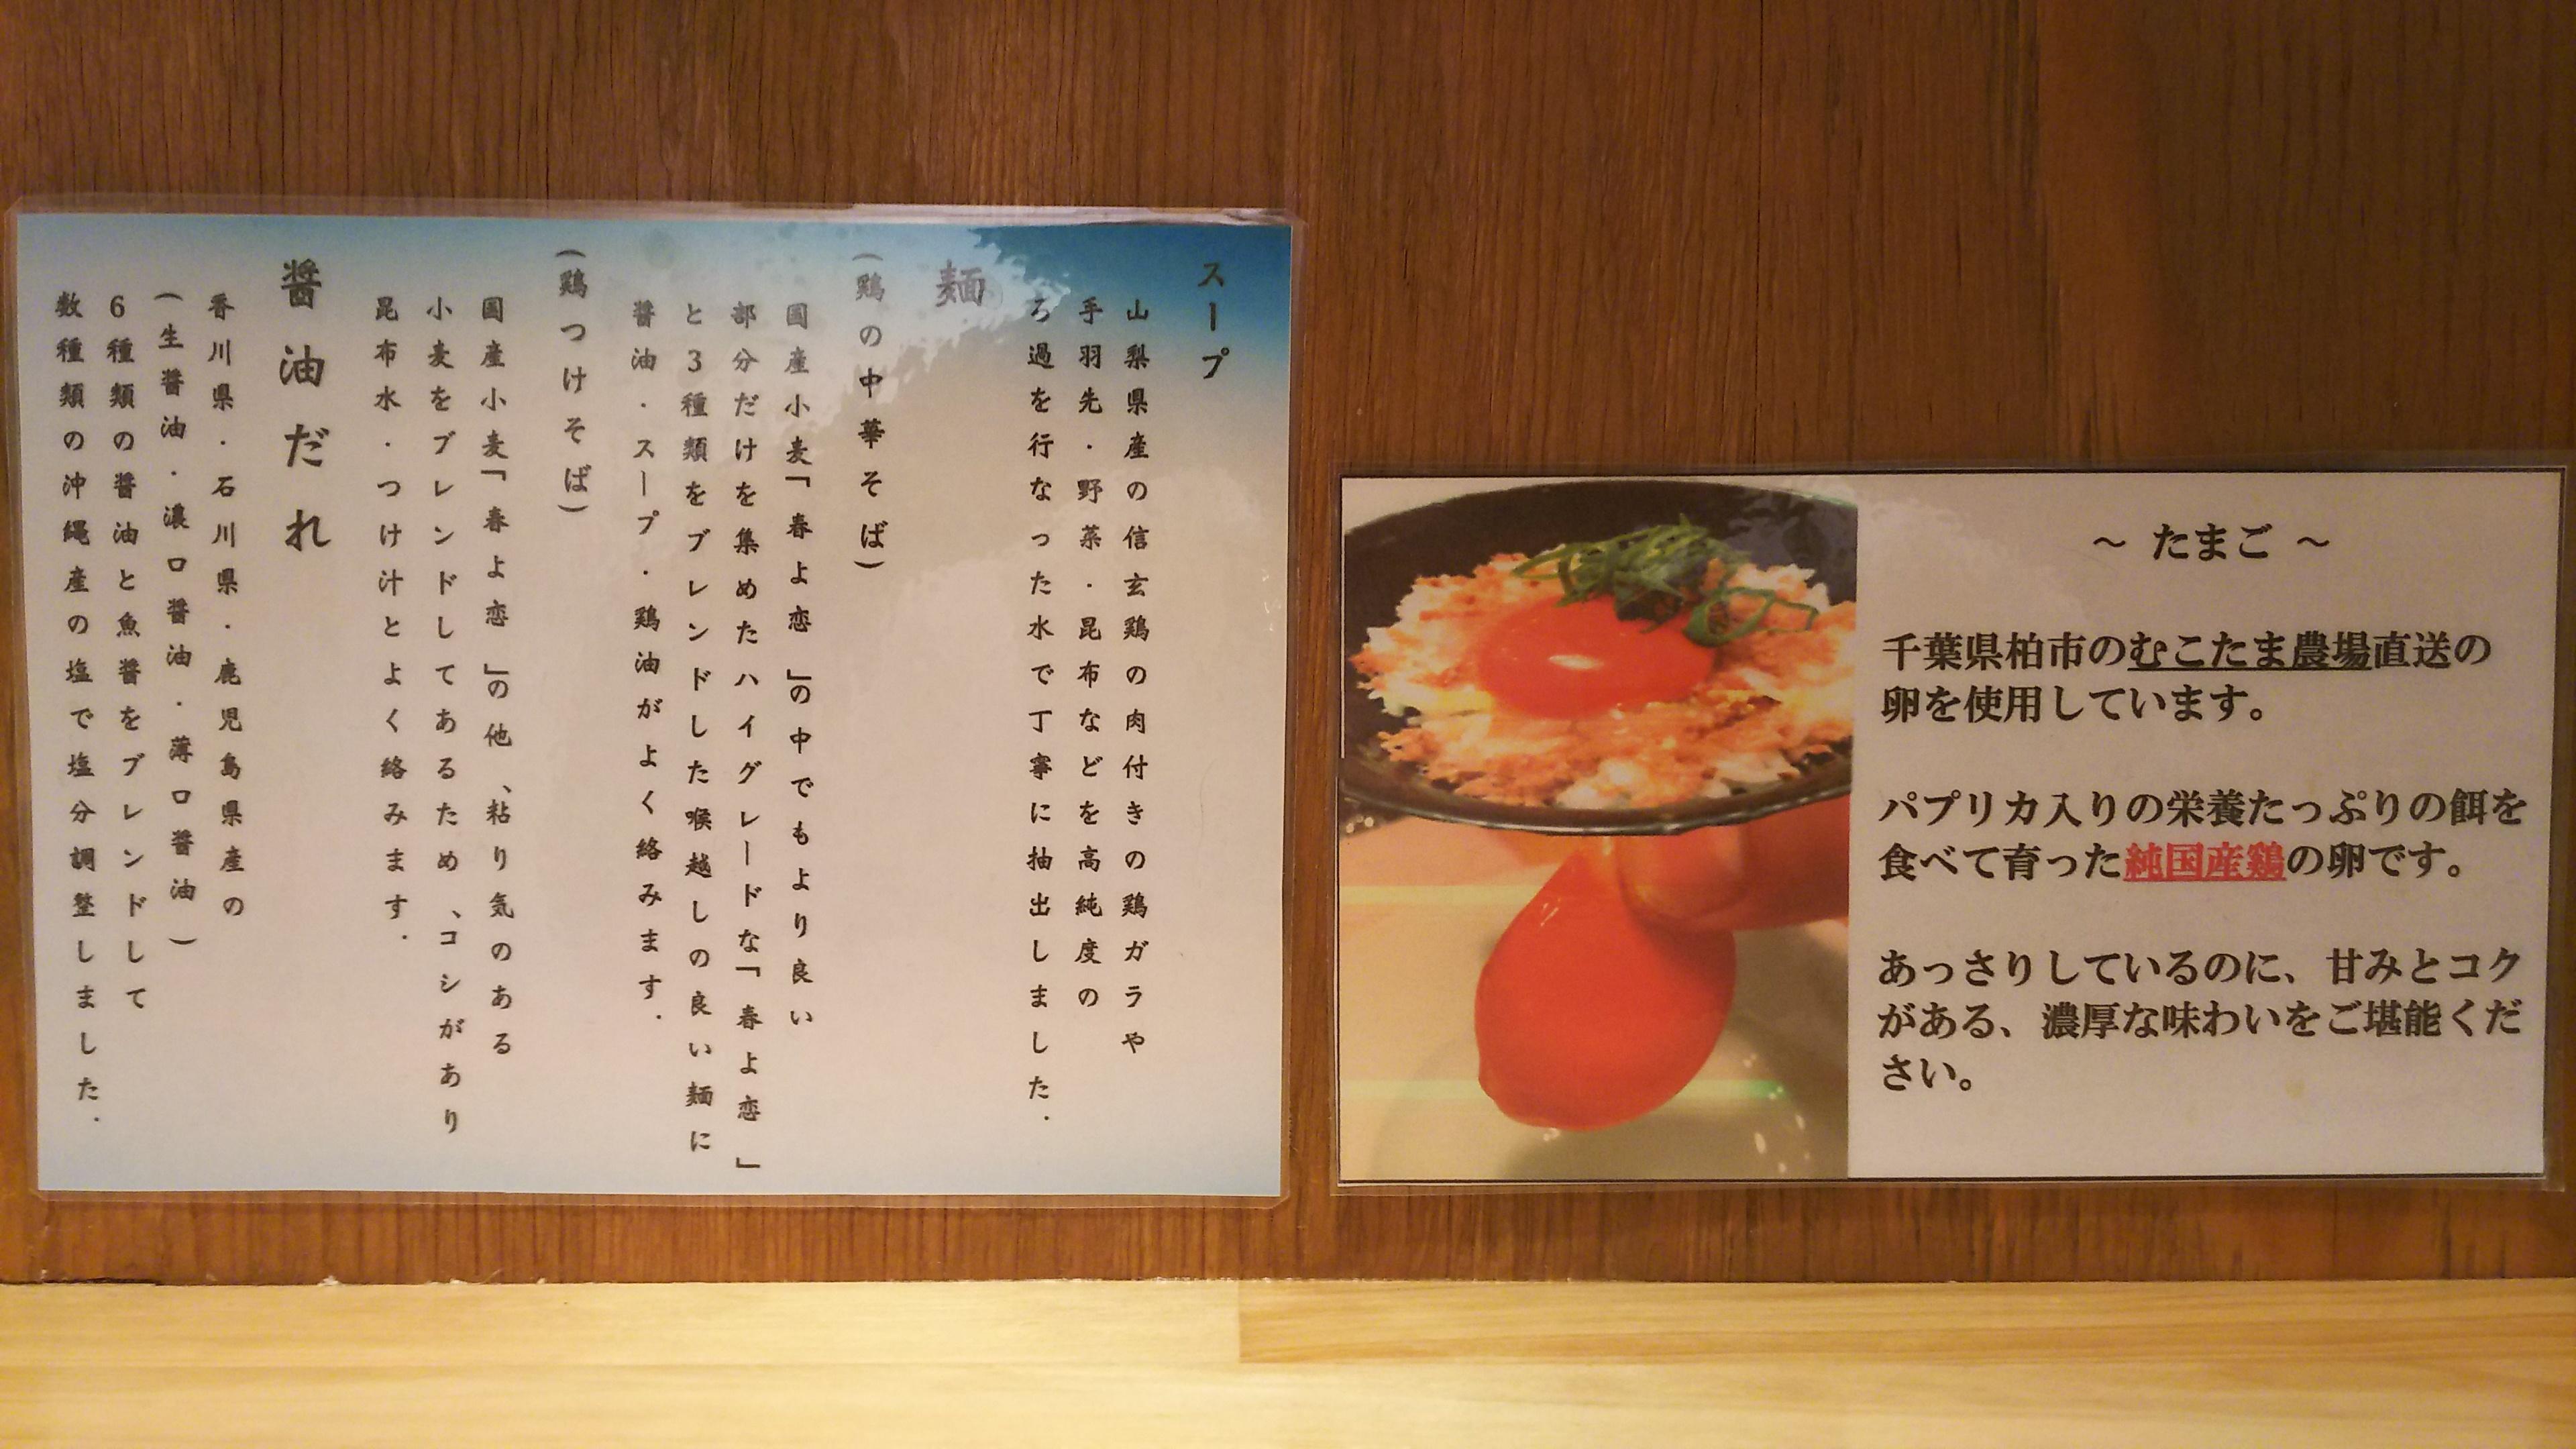 スープ
山梨県産の信玄鶏の肉付きの鶏ガラや
手羽先・野菜・昆布などを高純度の
ろ過を行なった水で丁寧に抽出しました.
麺
(鶏の中華そば)
国産小麦「春よ恋」の中でもより良い
部分だけを集めたハイグレードな「春よ恋」
と3種類をブレンドした喉越しの良い麺に
醤油・スープ・鶏油がよく絡みます.
(鶏つけそば)
国産小麦「春よ恋」の他、粘り気のある
小麦をブレンドしてあるため、コシがあり
昆布水・つけ汁とよく絡みます.
醤油だれ
香川県・石川県・鹿児島県産の
(生醤油・濃口醤油・薄口醤油)
6種類の醤油と魚醤をブレンドして
数種類の沖縄産の塩で塩分調整しました.
～ たまご ～
千葉県柏市のむこたま農場直送の
卵を使用しています。
パプリカ入りの栄養たっぷりの餌を
食べて育った純国産鶏の卵です。
あっさりしているのに、甘みとコク
がある、濃厚な味わいをご堪能くだ
さい。